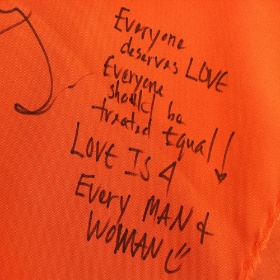 Everyone
deserves LOVE
Everyone
should be
treated Equal!
LOVE IS 4
Every MAN +
WOMAN